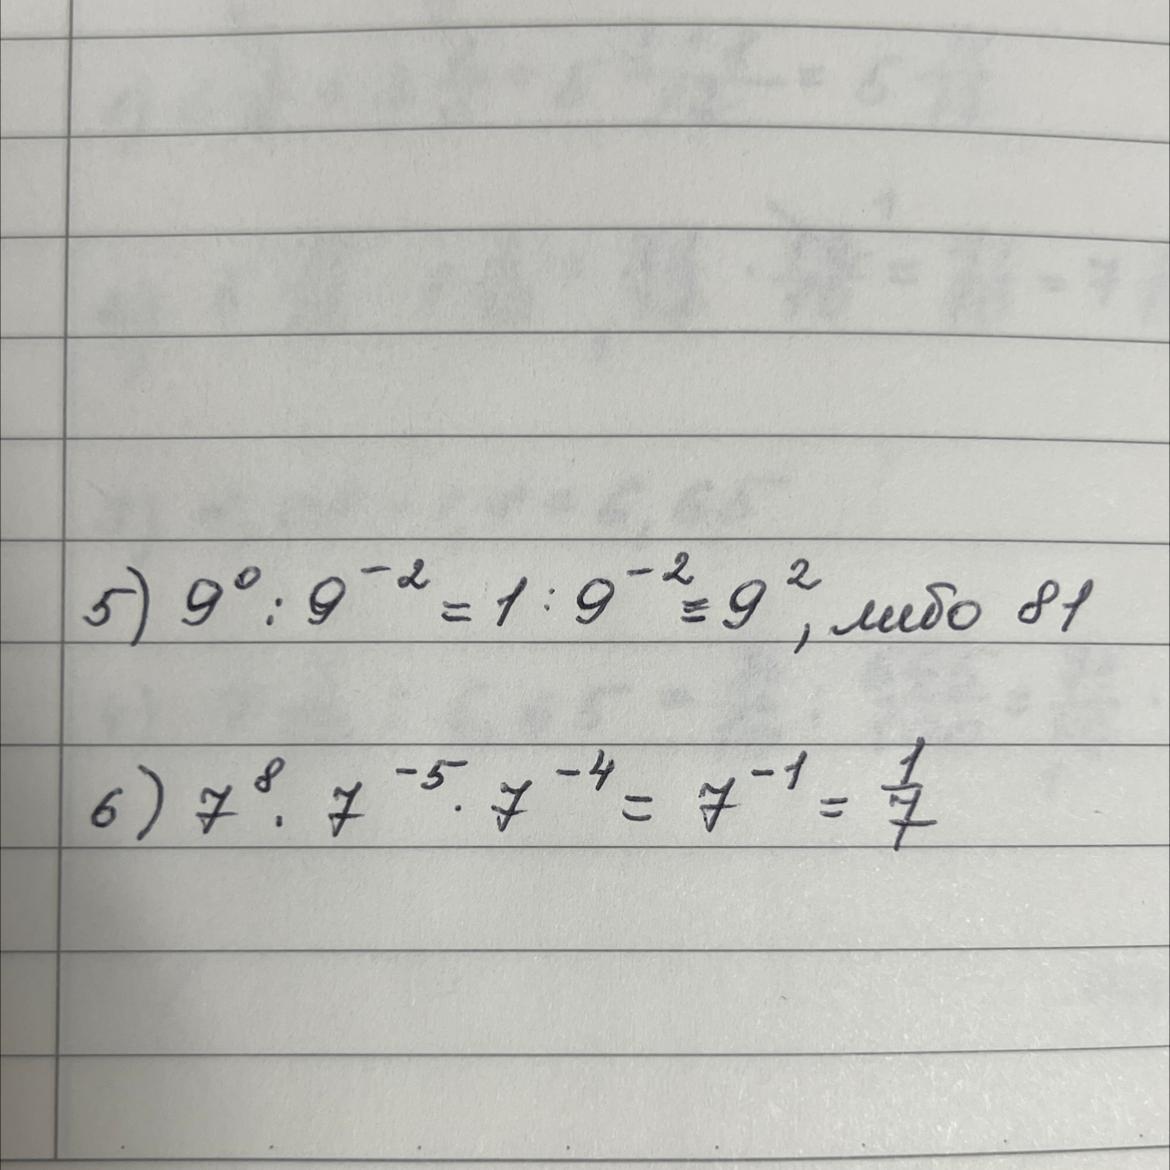 5) 9⁰ : 9⁻² = 1 : 9⁻² = 9², либо 81
6) 7⁸ · 7⁻⁵ · 7⁻⁴ = 7⁻¹ = 1/7